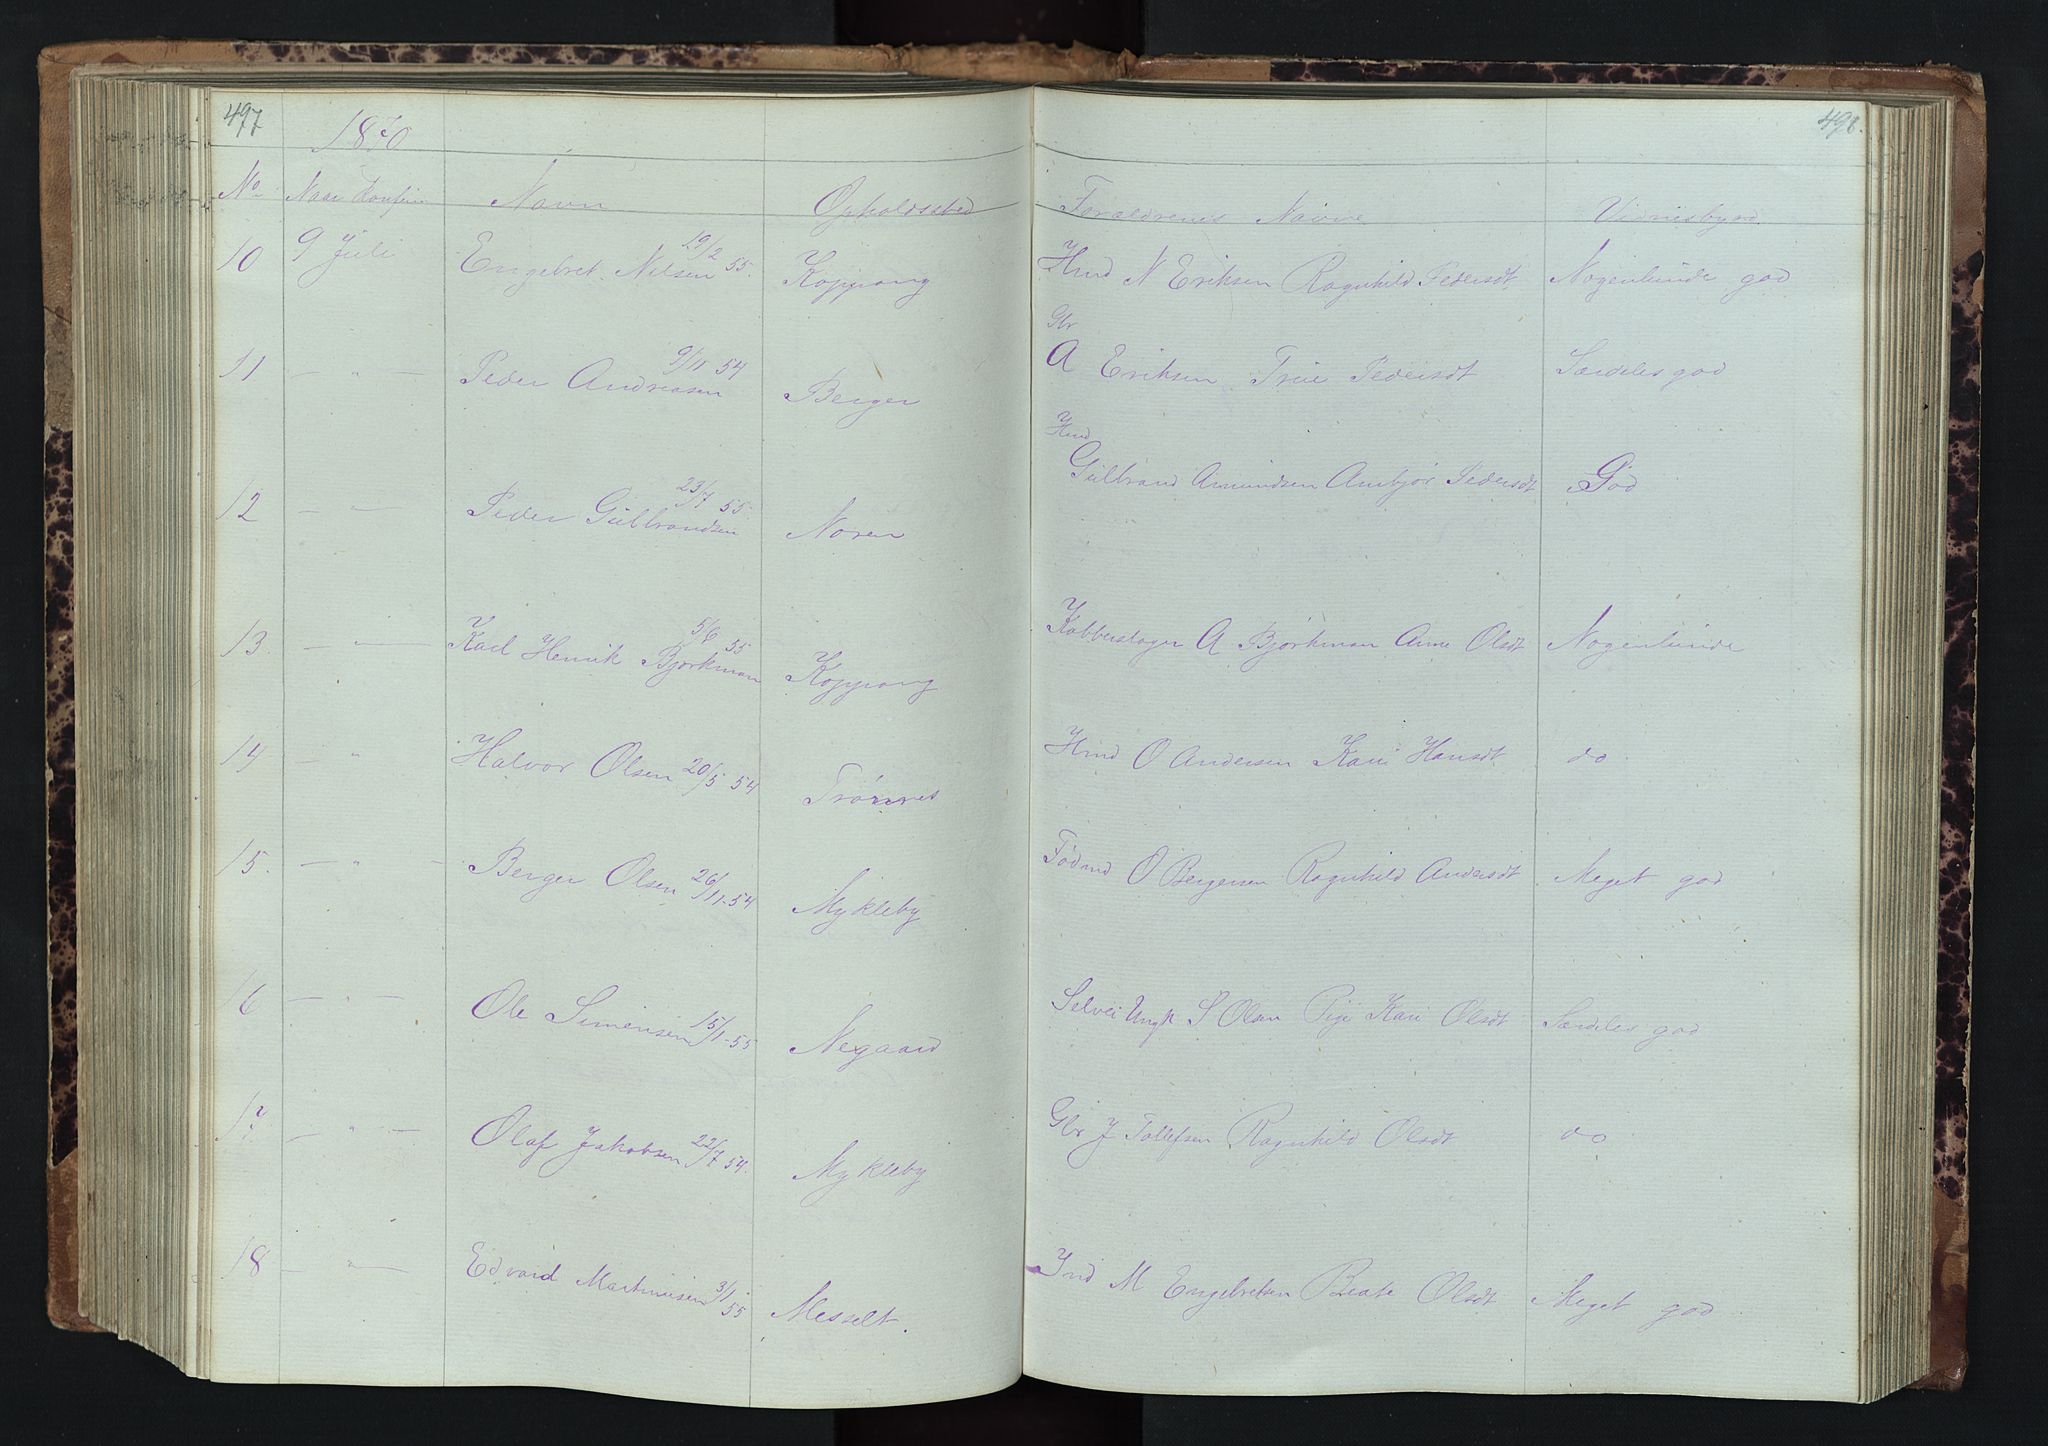 497
1870
498.
No Naar Konfirm Navn Opholdssted Forældrenes Navne Vidnesbyrd
10 9 Juli Engebret Nilsen 19/2 55. Koppang Hmd N Eriksen Ragnhild Pedersdt Nogenlunde god
11 — " — Peder Andreasen 9/11 54 Berger Gbr A Eriksen Trie Pedersdt Særdeles god
12 — " — Peder Gulbrandsen 23/7 55 Noren Hmd Gulbrand Amundsen Ambjør Pedersdt God
13. — " — Karl Henrik Bjørkman 5/6 55 Koppang Kobberslager A Bjørkman Anne Olsdt Nogenlunde
14 — " Halvor Olsen 20/5 54 Trønnes Hmd O Andersen Kari Hansdt do
15. — " — Berger Olsen 26/11-54 Mykleby Fødmd O Bergersen Ragnhild Andersdt Meget god
16 — " — Ole Simensen 15/1-55 Negaard Selvei Ungk S Olsen Pige Kari Olsdt Særdeles god
17 — " — Olaf Jakobsen 22/7 54. Mykleby Gbr J Tollefsen Ragnhild Olsdt do
18 — " — Edvard Martinusen 3/1 55 Messelt. Ind M Engebretsen Beate Olsdt Meget god